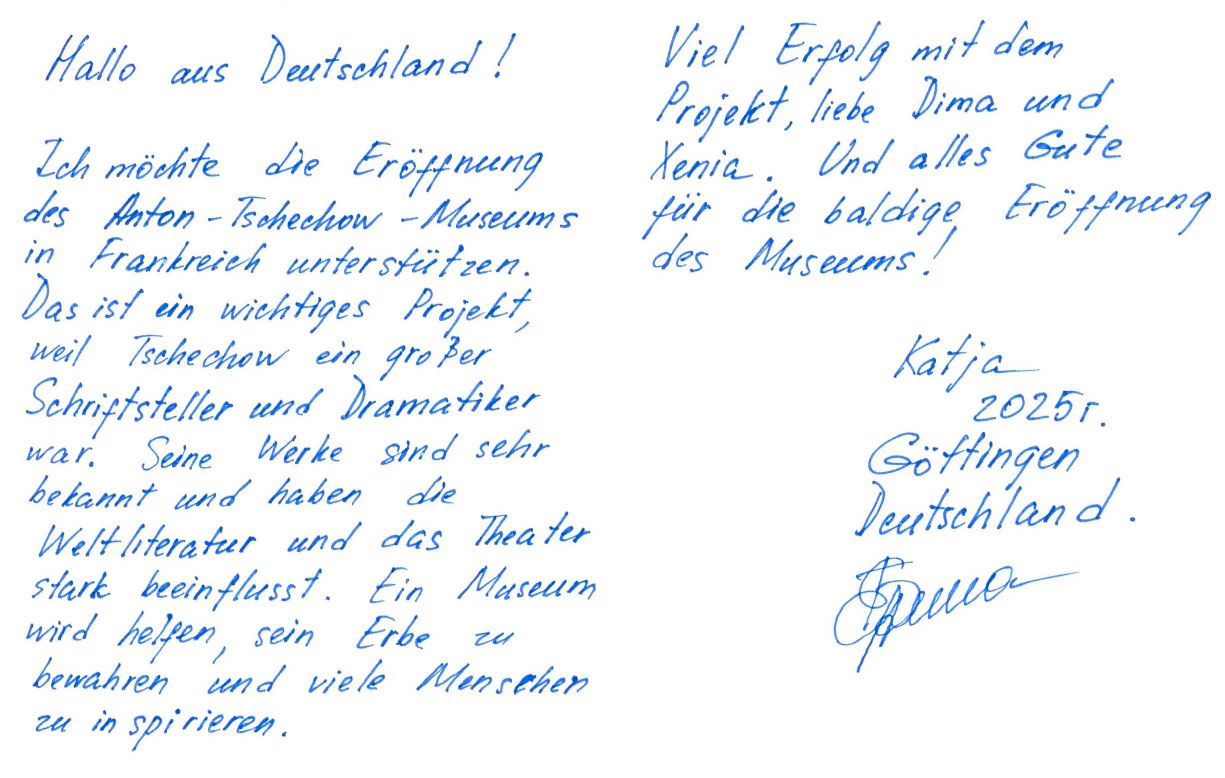 Hallo aus Deutschland!
Ich möchte die Eröffnung
des Anton-Tschechow-Museums
in Frankreich unterstützen.
Das ist ein wichtiges Projekt,
weil Tschechow ein großer
Schriftsteller und Dramatiker
war. Seine Werke sind sehr
bekannt und haben die
Weltliteratur und das Theater
stark beeinflusst. Ein Museum
wird helfen, sein Erbe zu
bewahren und viele Menschen
zu inspirieren.
Viel Erfolg mit dem
Projekt, liebe Dima und
Xenia. Und alles Gute
für die baldige Eröffnung
des Museums!
Katja
2025г.
Göttingen
Deutschland.